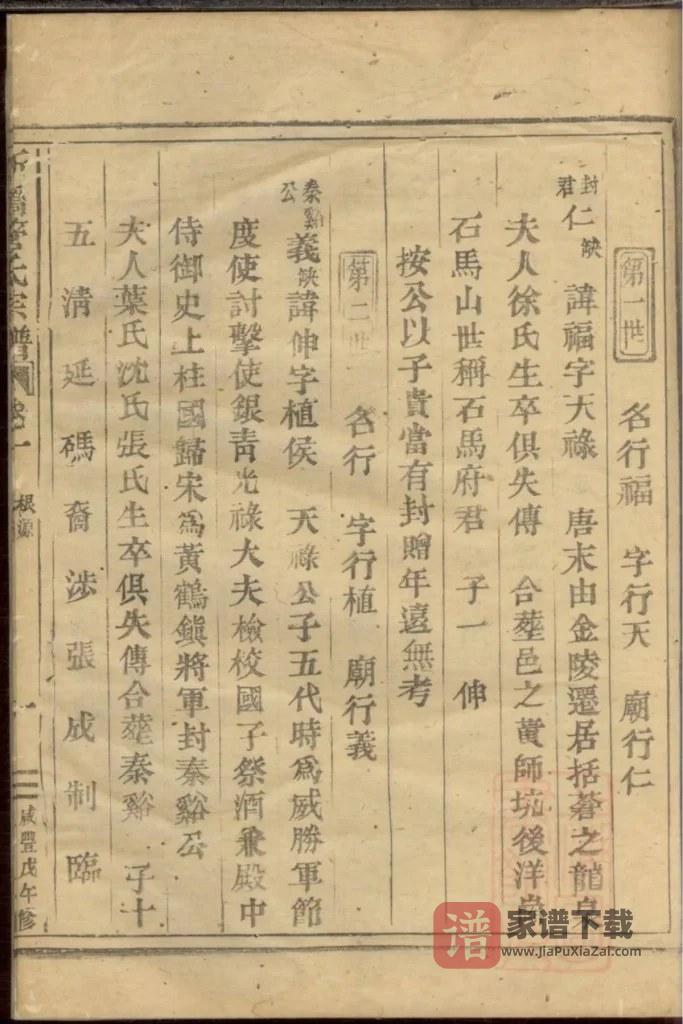 第一世 名行福 字行天 廟行仁
封君 仁缺 諱福字天祿 唐末由金陵遷居括蒼之龍泉
夫人徐氏生卒俱失傳 合塟邑之黄師坑後洋
石馬山世稱石馬府君 子一 伸
按公以子貴當有封贈年遠無考
第二世 名行 字行植 廟行義
秦谿公 義缺 諱伸字植侯 天祿公子五代時爲威勝軍節
度使討擊使銀青光祿大夫檢校國子祭酒兼殿中
侍御史上柱國歸宋爲黃鶴鎭將軍封秦谿公
夫人葉氏沈氏張氏生卒俱失傳合塟秦谿 子十
五 清 延 碼 裔 涉 張 成 制 臨
管氏宗譜 卷一 根源 一 咸豐戊午修
譜 家谱下载
www.JiaPuXiaZai.com